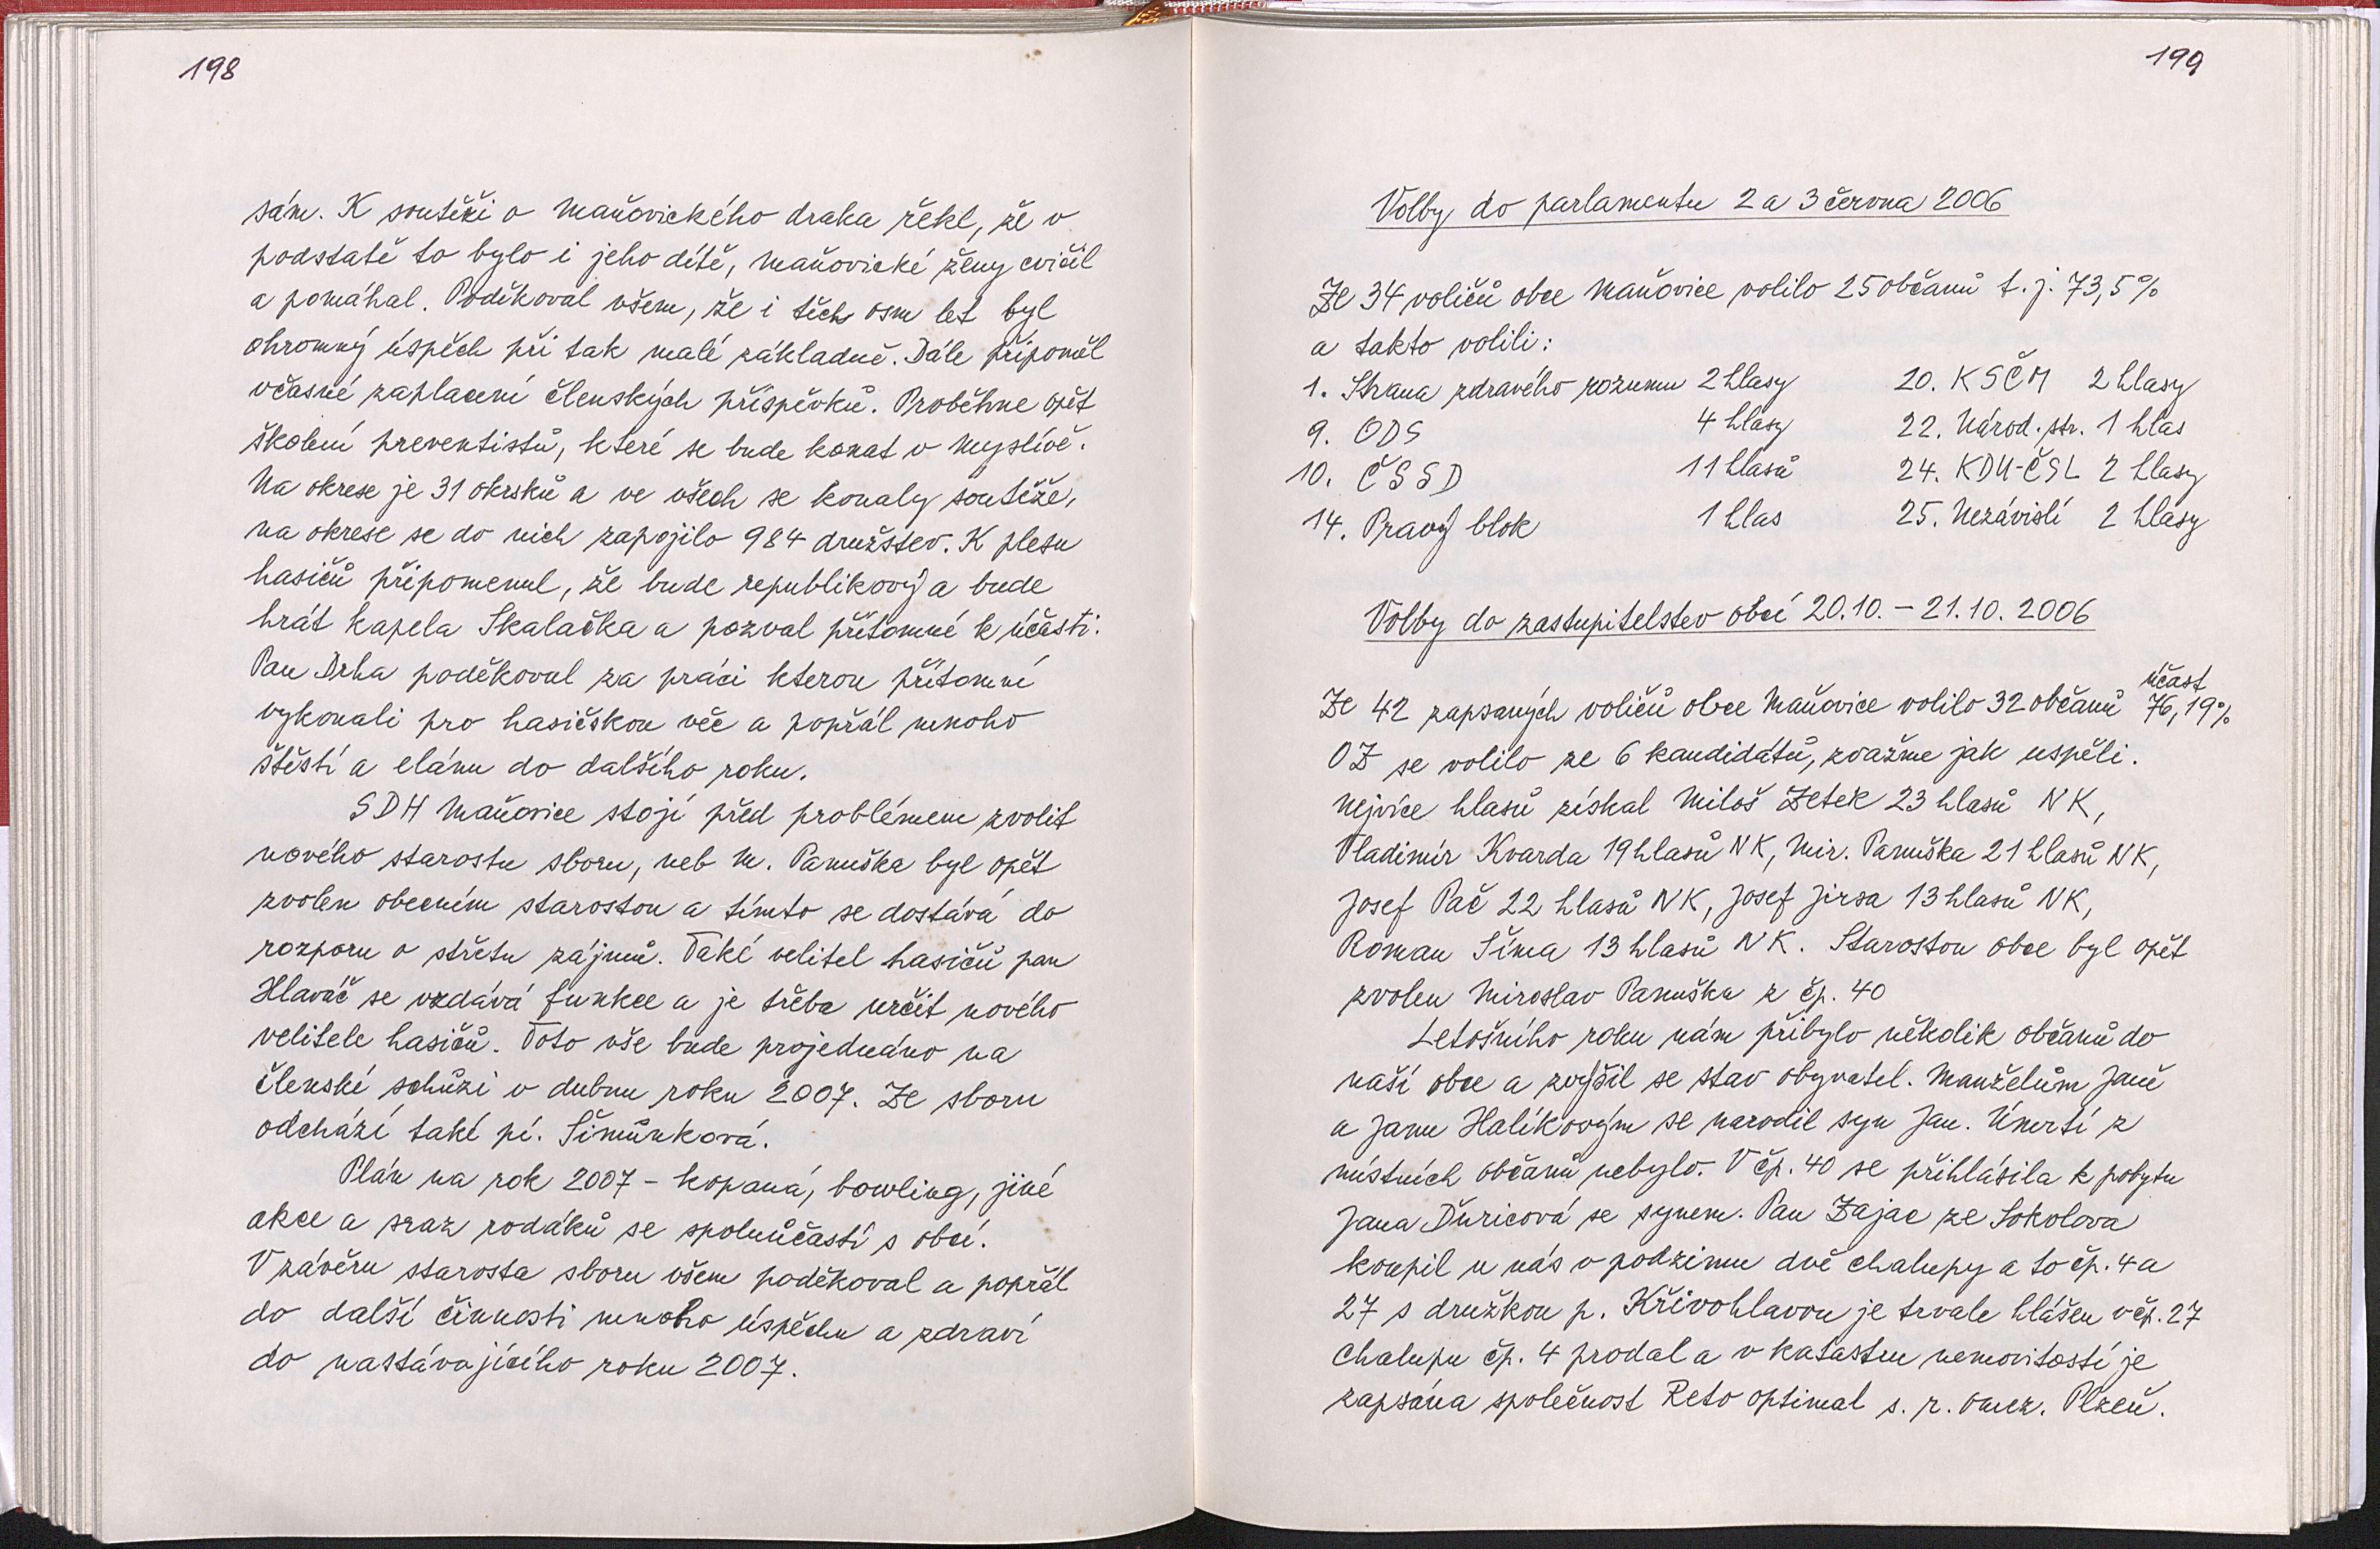 198
sám. K soutěži o Maňovického draka řekl, že v
podstatě to bylo i jeho dítě, Maňovické ženy cvičil
a pomáhal. Poděkoval všem, že i těch osm let byl
ohromný úspěch při tak malé základně. Dále připoměl
včasné zaplacení členských příspěvků. Proběhne opět
školení preventistů, které se bude konat v Myslívě.
Na okrese je 31 okrsků a ve všech se konaly soutěže,
na okrese se do nich zapojilo 984 družstev. K plesu
hasičů připomenul, že bude republikový a bude
hrát kapela Skalačka a pozval přítomné k účasti.
Pan Drha poděkoval za práci kterou přítomní
vykonali pro hasičskou věc a popřál mnoho
štěstí a elánu do dalšího roku.
SDH Maňovice stojí před problémem zvolit
nového starostu sboru, neb M. Panuška byl opět
zvolen obecním starostou a tímto se dostává do
rozporu o střetu zájmů. Také velitel hasičů pan
Hlaváč se vzdává funkce a je třeba určit nového
velitele hasičů. Toto vše bude projednáno na
členské schůzi v dubnu roku 2007. Ze sboru
odchází také pí. Šimůnková.
Plán na rok 2007 - kopaná, bowling, jiné
akce a sraz rodáků se spoluúčastí s obcí.
V závěru starosta sboru všem poděkoval a popřál
do další činnosti mnoho úspěchu a zdraví
do nastávajícího roku 2007.
199
Volby do parlamentu 2 a 3 června 2006
Ze 34 voličů obce Maňovice volilo 25 občanů t.j. 73,5%
a takto volili:
1. Strana zdravého rozumu 2 hlasy 20. KSČM 2 hlasy
9. ODS 4 hlasy 22. Národ. str. 1 hlas
10. ČSSD 11 hlasů 24. KDU-ČSL 2 hlasy
14. Pravý blok 1 hlas 25. Nezávislí 2 hlasy
Volby do zastupitelstev obcí 20.10. - 21.10. 2006
účast
Ze 42 zapsaných voličů obce Maňovice volilo 32 občanů 76,19%
OZ se volilo ze 6 kandidátů, zvažme jak uspěli.
Nejvíce hlasů získal Miloš Zetek 23 hlasů NK,
Vladimír Kvarda 19 hlasů NK, Mir. Panuška 21 hlasů NK,
Josef Pač 22 hlasů NK, Josef Jirsa 13 hlasů NK,
Roman Šíma 13 hlasů NK. Starostou obce byl opět
zvolen Miroslav Panuška z čp. 40
Letošního roku nám přibylo několik občanů do
naší obce a zvýšil se stav obyvatel. Manželům Janě
a Janu Halíkovým se narodil syn Jan. Úmrtí z
místních občanů nebylo. V čp. 40 se přihlásila k pobytu
Jana Ďuricová se synem. Pan Zajac ze Sokolova
koupil u nás v podzimu dvě chalupy a to čp. 4 a
27 s družkou p. Křivohlavou je trvale hlášen v čp. 27
Chalupu čp. 4 prodal a v katastru nemovitostí je
zapsána společnost Reto optimal s. r. omez. Plzeň.